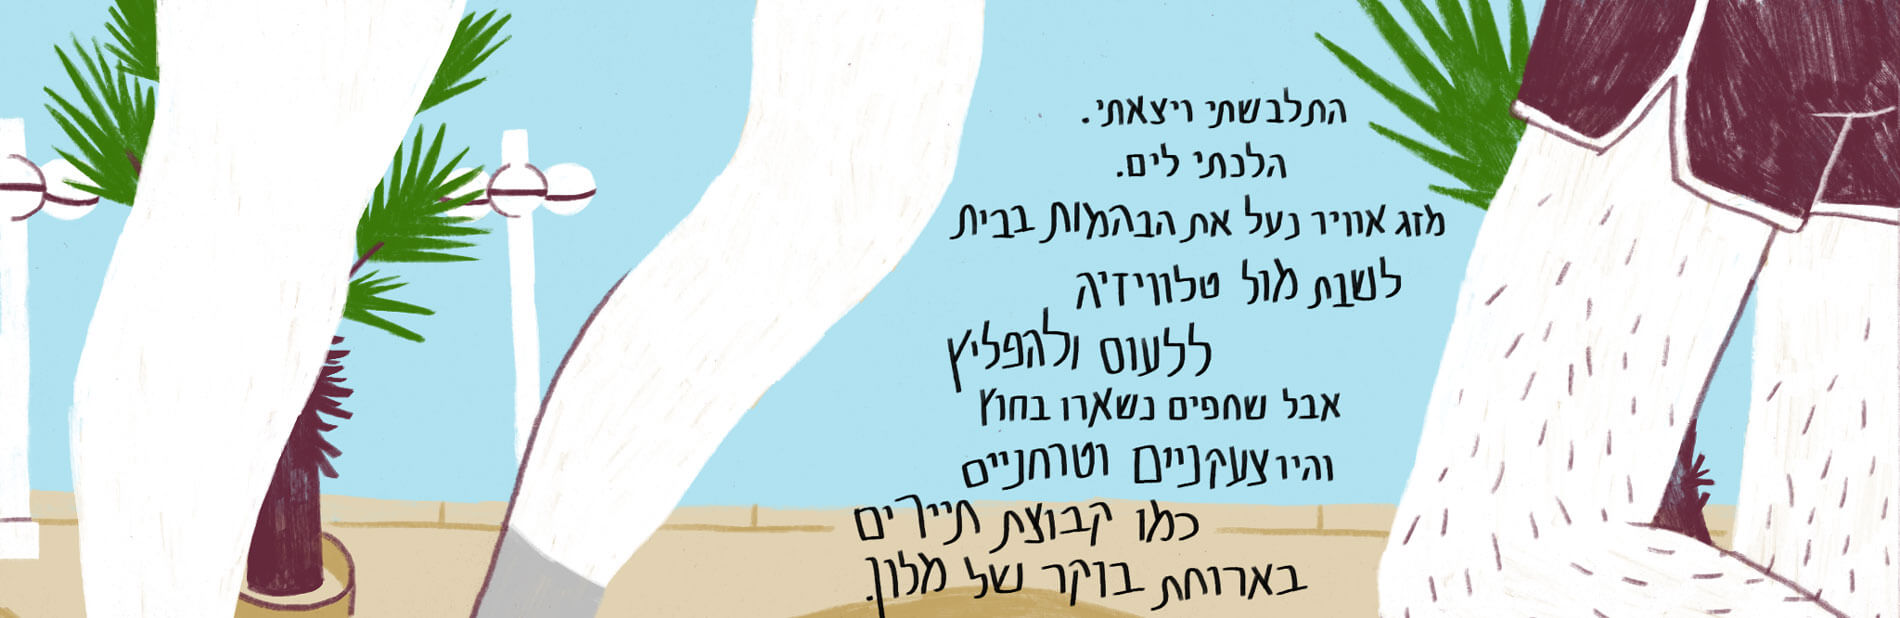 התלבשתי ויצאתי.
הלכתי לים.
מזג אוויר נעל את הבהמות בבית
לשבת מול טלוויזיה
ללעוס ולהפליץ
אבל שחפים נשארו בחוץ
והיו צעקניים וטרחניים
כמו קבוצת תיירים
בארוחת בוקר של מלון.